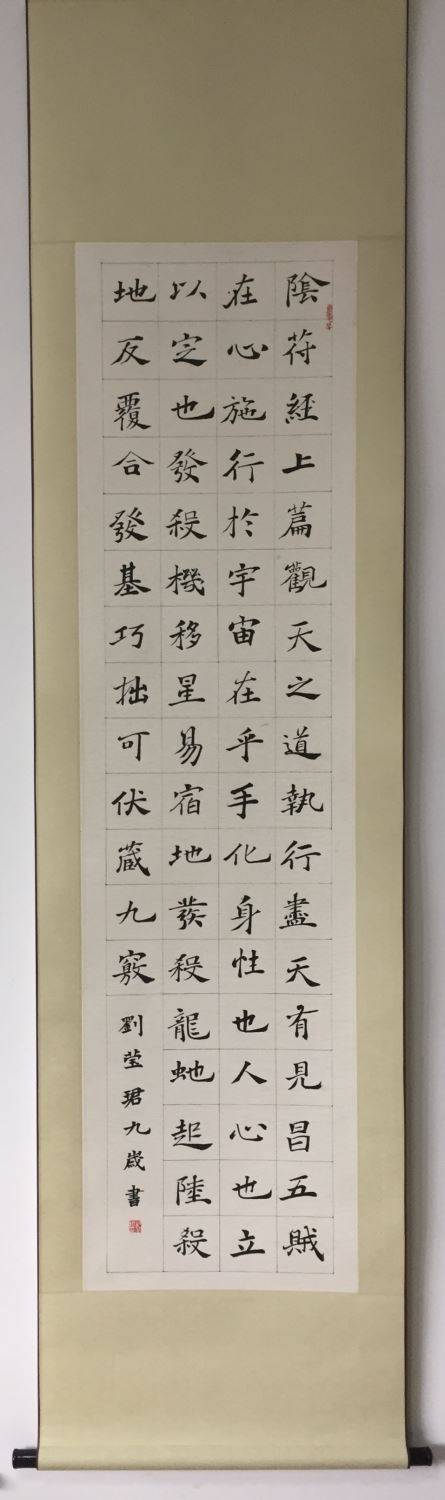 陰符經上篇觀天之道執行盡天有見昌五賊
在心施行於宇宙在乎手化身性也人心也立
以定也發殺機移星易宿地發殺龍虵起陸殺
地反覆合發基巧拙可伏藏九竅
劉莹珺九歲書